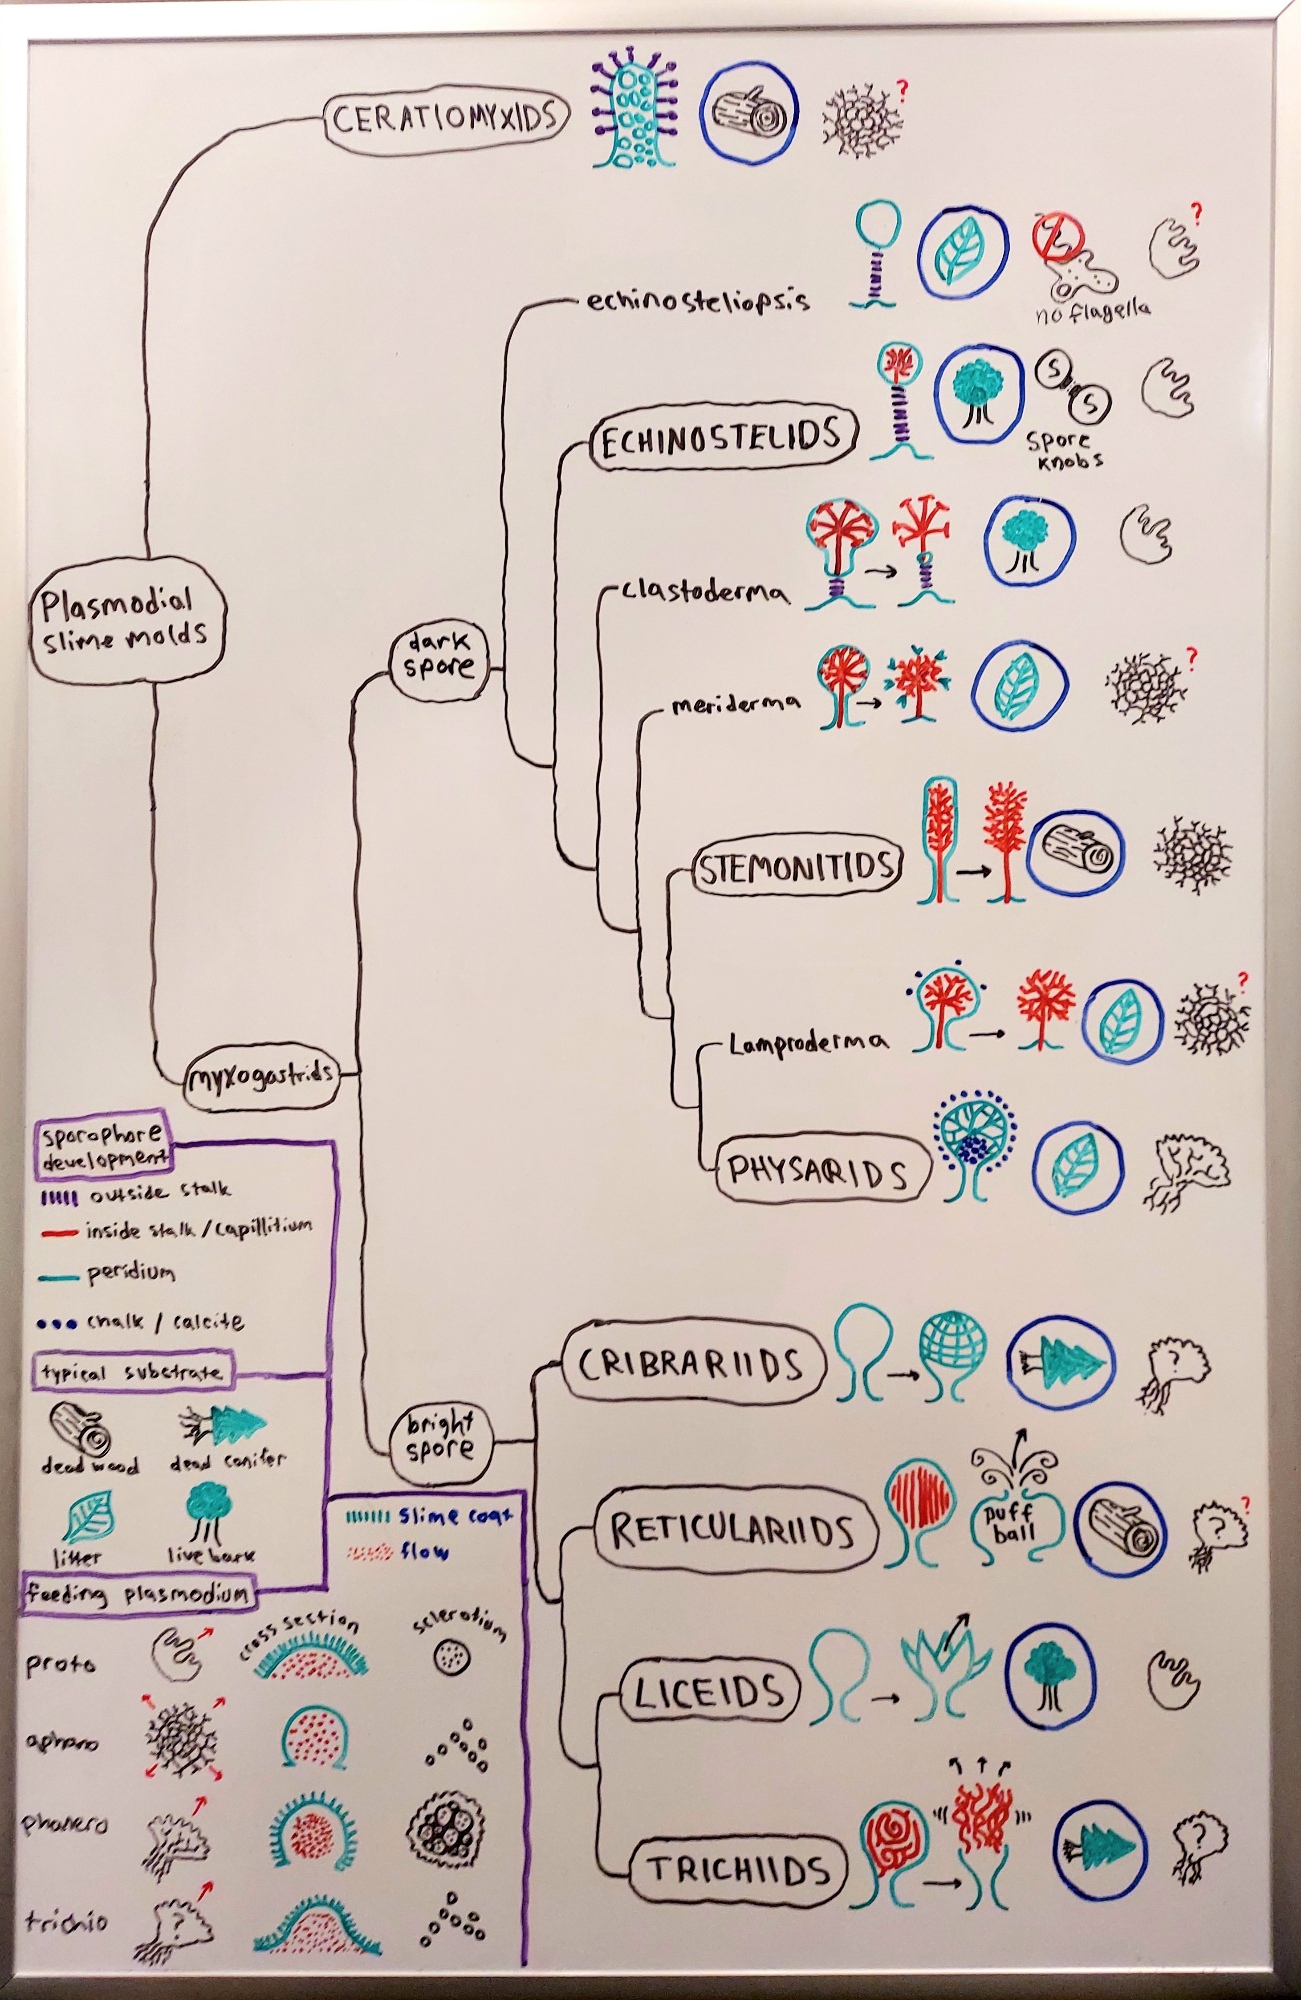 CERATIOMYXIDS
?
?
echinosteliopsis
no flagella
S
S
ECHINOSTELIDS
Spore
knobs
clastoderma
Plasmodial
slime molds
dark
spore
meriderma
?
STEMONITIDS
?
Lamproderma
myxogastrids
PHYSARIDS
sporophore
development
outside stalk
inside stalk / capillitium
peridium
chalk / calcite
typical substrate
dead wood
dead conifer
litter
live bark
feeding plasmodium
slime coat
flow
cross section
sclerotium
proto
aphano
phanero
trichio
?
CRIBRARIIDS
?
bright
spore
RETICULARIIDS
puff
ball
?
?
LICEIDS
TRICHIIDS
?